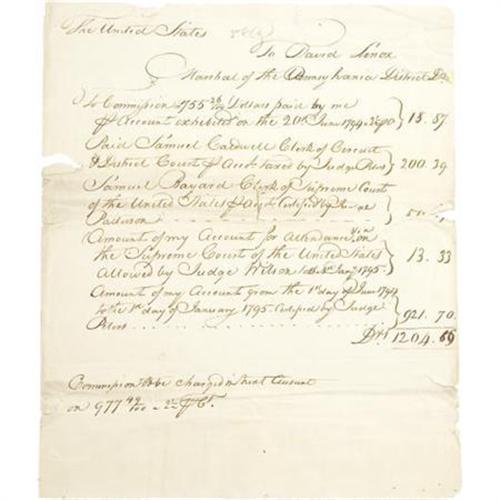 The United States
To David Lenox
Marshal of the Pennsylvania District Dr.
To Commission 755 26/100 Dollars paid by me
Account exhibited on the 20th June 1794 18. 87
Paid Samuel Caldwell Clerk of Circuit
& District Court taxed by Judge Peters 200. 39
Samuel Bayard Clerk of Supreme Court
of the United States Certified by
Paterson 50
Amount of my Account for Attendance in
the Supreme Court of the United States 13. 33
Allowed by Judge Wilson 1795.
Amount of my Account from the 1st day of June 1794
to the 1st day of January 1795 Certified by Judge 921. 70
Peters
Drs 1204. 
Commission to be charged in next Account
on 977 49/100